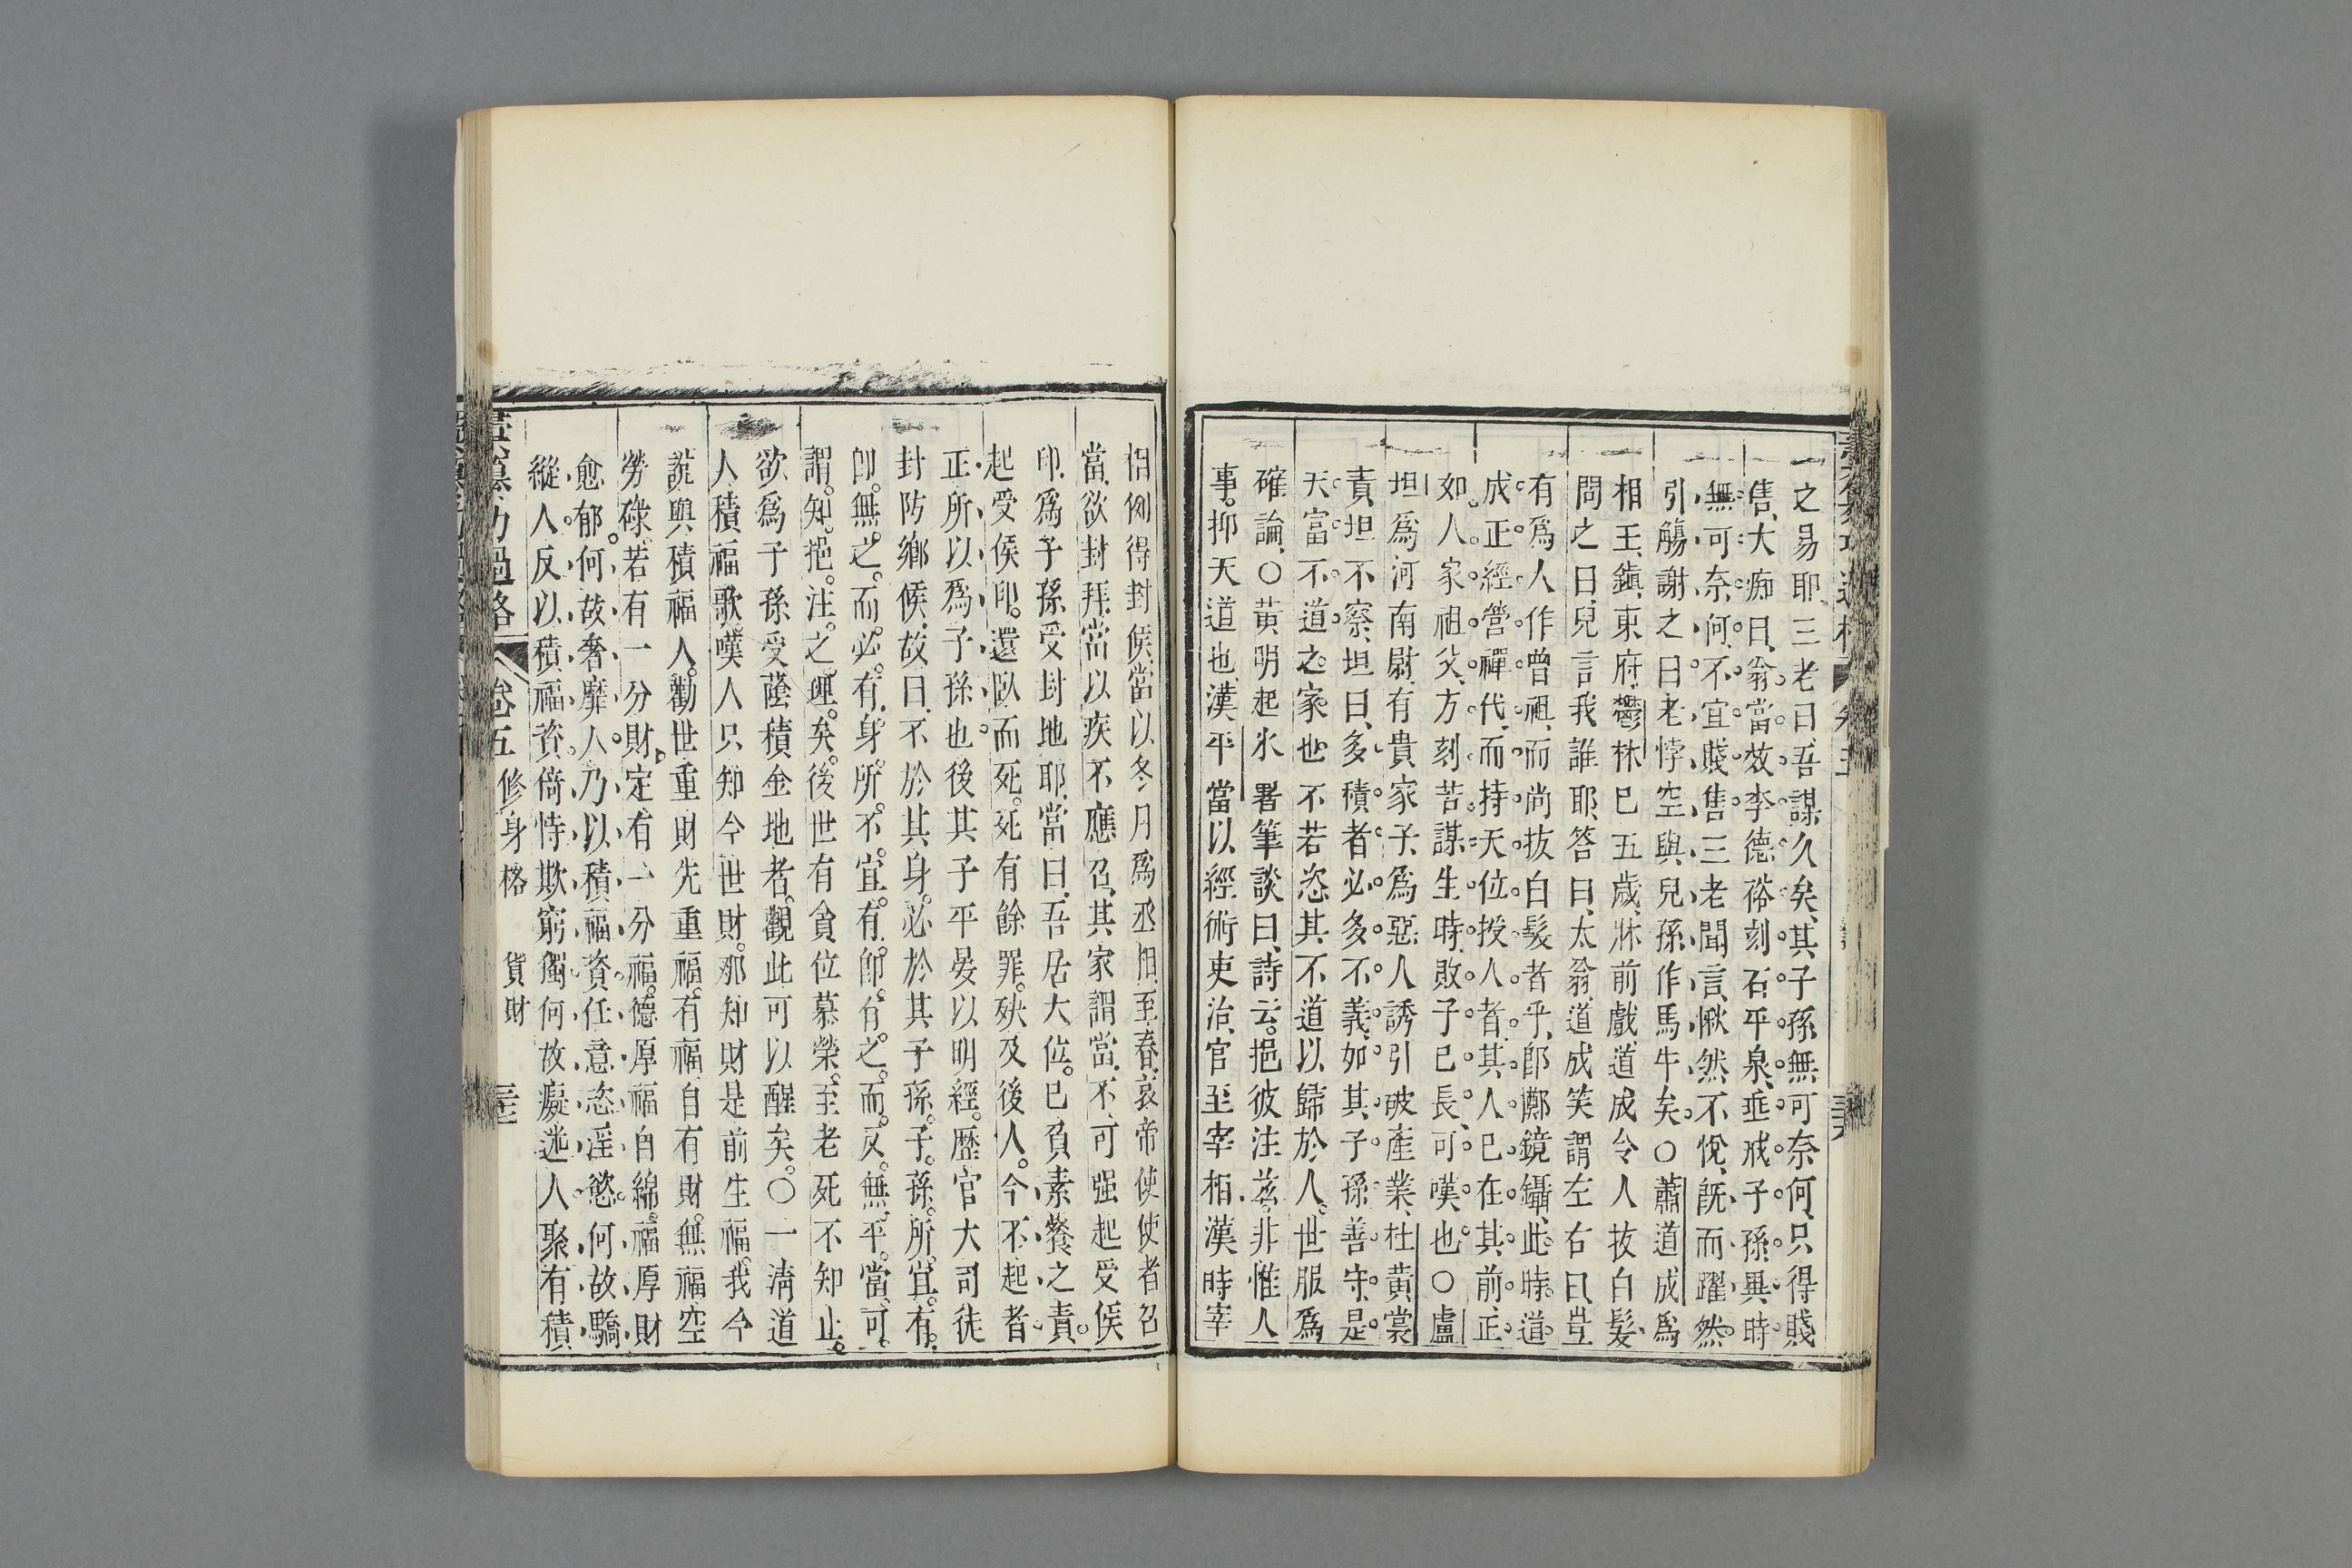 之易耶、三老曰、吾謀久矣、其子孫無可奈何、只得賤
售、大痴曰、翁當效李德裕刻石平泉、垂戒子孫、異時
無可奈何、不宜賤售、三老聞言、愀然不悅、既而躍然
引觴謝之曰、老悖空與兒孫作馬牛矣。○蕭道成爲
相王、鎮東府、鬱林已五歲、牀前戲、道成令人拔白髮、
問之曰、兒言我誰耶、答曰、太翁、道成笑謂左右曰、豈
有爲人作曾祖、而尚拔白髮者乎、卽擲鏡鑷、此時道
成正經營禪代、而持天位授人者、其人已在其前、正
如人家祖父、方刻苦謀生時、敗子已長、可嘆也。○盧
坦爲河南尉、有貴家子、爲惡人誘引破產業、杜黃裳
責坦不察、坦曰、多積者必多不義、如其子孫善守、是
天富不道之家也、不若恣其不道以歸於人、世服爲
確論、○黃明起氷署筆談曰、詩云、挹彼注茲、非惟人
事、抑天道也、漢平當以經術吏治、官至宰相、漢時宰
相例得封侯、當以冬月爲丞相、至春、哀帝使使者召
當、欲封拜、當以疾不應召、其家謂當、不可强起受侯
印、爲子孫受封地耶、當曰、吾居大位、已負素餐之責、
起受侯印、還臥而死、死有餘罪、殃及後人、今不起者、
正所以爲子孫也、後其子平晏以明經、歷官大司徒
封防鄉侯、故曰、不於其身、必於其子孫、子孫所宜有、
卽無之、而必有、身所不宜有、卽有之、而反無、平當可
謂知挹注之理矣、後世有貪位慕榮、至老死不知止、
欲爲子孫受蔭積金地者、觀此可以醒矣、○一淸道
人積福歌、嘆人只知今世財、那知財是前生福、我今
說與積福人、勸世重財先重福、有福自有財、無福空
勞碌、若有一分財、定有一分福、德厚福自綿、福厚財
愈郁、何故奢靡人、乃以積福資、任意恣淫慾、何故驕
縱人、反以積福資、倚恃欺窮獨、何故癡迷人、聚有積
彙纂功過格 卷五 修身格 貨財